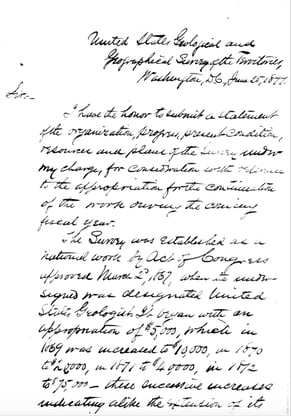 United States Geological and
Geographical Survey of the Territories,
Washington, D.C., June 25, 1877.
Sir:-
I have the honor to submit a statement
of the organization, progress, present condition,
resources and plans of the Survey under
my charge, for consideration with reference
to the appropriation for the continuation
of the work during the coming
fiscal year.
The Survey was established as a
national work by Act of Congress
approved March 2d, 1867, when the under-
signed was designated United
States Geologist. It began with an
appropriation of $5,000, which in
1869 was increased to $10,000, in 1870
to $25,000, in 1871 to $40,000, in 1872
to $75,000 — these successive increases
indicating alike the extension of its